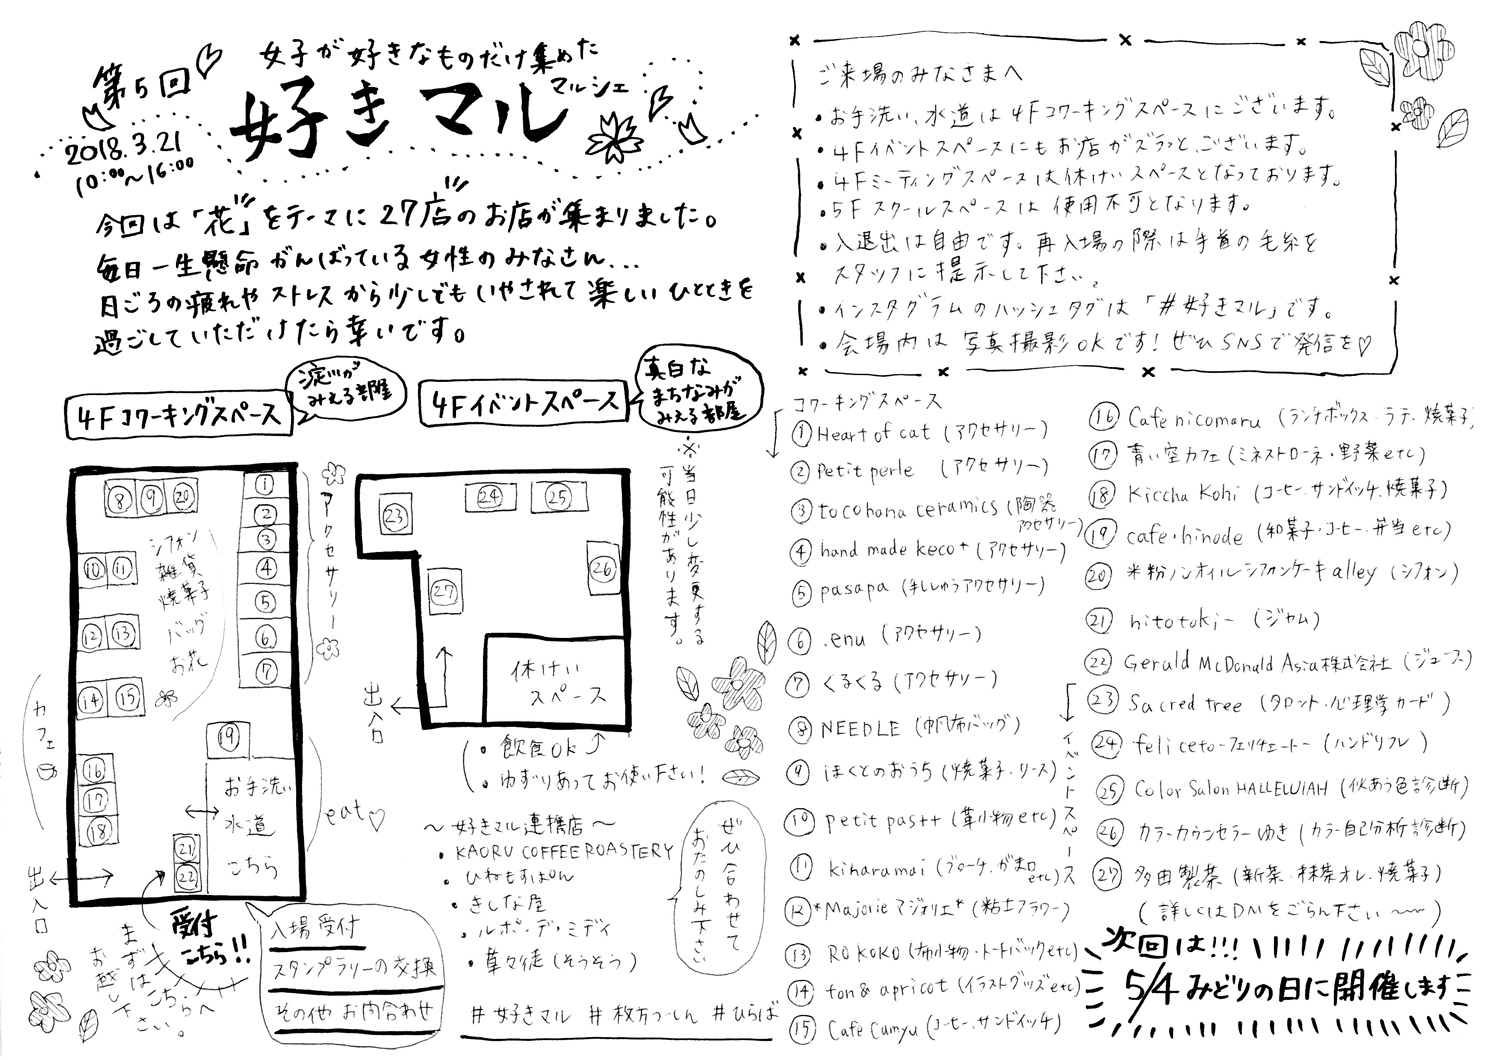 第5回
女子が好きなものだけ集めた
マルシェ
好きマル
2018.3.21
10:00〜16:00
今回は「花」をテーマに27店のお店が集まりました。
毎日一生懸命がんばっている女性のみなさん...
日ごろの疲れやストレスから少しでもいやされて楽しいひとときを
過ごしていただけたら幸いです。
ご来場のみなさまへ
・お手洗い、水道は4Fコワーキングスペースにございます。
・4Fイベントスペースにもお店がズラッとございます。
・4Fミーティングスペースは休けいスペースとなっております。
・5Fスクールスペースは使用不可となります。
・入退出は自由です。再入場の際は手首の毛糸を
スタッフに提示して下さい。
・インスタグラムのハッシュタグは「#好きマル」です。
・会場内は写真撮影OKです!ぜひSNSで発信を♡
4Fコワーキングスペース
淀川が
みえる部屋
⑧ ⑨ ⑳
① ② ③ ④ ⑤ ⑥ ⑦
アクセサリー
⑩ ⑪
⑫ ⑬
⑭ ⑮
シフォン
雑貨
焼菓子
バッグ
お花
カフェ
⑯
⑰
⑱
⑲
お手洗い
水道
こちら
eat♡
㉑
㉒
出入口
受付
こちら!!
まずはこちらへ
お越し下さい。
入場受付
スタンプラリーの交換
その他お問合わせ
4Fイベントスペース
真白な
まちなみが
みえる部屋
※当日少し変更する
可能性があります。
㉓ ㉔ ㉕
㉖
㉗
休けい
スペース
出入口
・飲食OK
・ゆずりあってお使い下さい!
〜好きマル連携店〜
・KAORU COFFEE ROASTERY
・ひねもすぱん
・きしな屋
・ルポ・デ・ミディ
・草々徒(そうそう)
ぜひ合わせて
おたのしみ下さい
#好きマル #枚方つーしん #ひらば
コワーキングスペース
① Heart of cat (アクセサリー)
② Petit perle (アクセサリー)
③ tocohana ceramics (陶器
アクセサリー)
④ hand made keco+ (アクセサリー)
⑤ pasapa (刺しゅうアクセサリー)
⑥ .enu (アクセサリー)
⑦ くるくる (アクセサリー)
⑧ NEEDLE (帆布バッグ)
⑨ ほくとのおうち (焼菓子・リース)
⑩ petit pas++ (革小物etc)
⑪ kiharamai (ブローチ、がま口
etc)
⑫ *Majorie マジョリエ* (粘土フラワー)
⑬ ROKOKO (布小物・トートバックetc)
⑭ ton & apricot (イラストグッズetc)
⑮ Cafe Camyu (コーヒー、サンドイッチ)
⑯ Cafe nicomaru (ランチボックス・ラテ・焼菓子)
⑰ 青い空カフェ (ミネストローネ・野菜etc)
⑱ Kiccha Kohi (コーヒー、サンドイッチ、焼菓子)
⑲ cafe・hinode (和菓子・コーヒー、弁当etc)
⑳ 米粉ノンオイルシフォンケーキalley (シフォン)
㉑ hitotoki- (ジャム)
㉒ Gerald McDonald Asia株式会社 (ジュース)
イベントスペース
㉓ Sacred tree (タロット・心理学カード)
㉔ feliceto-フェリチェートー (ハンドリフレ)
㉕ Color Salon HALLELUIAH (似あう色診断)
㉖ カラーカウンセラーゆき (カラー自己分析診断)
㉗ 多田製茶 (新茶・抹茶オレ・焼菓子)
(詳しくはDMをごらん下さい〜〜)
次回は!!!
5/4みどりの日に開催します